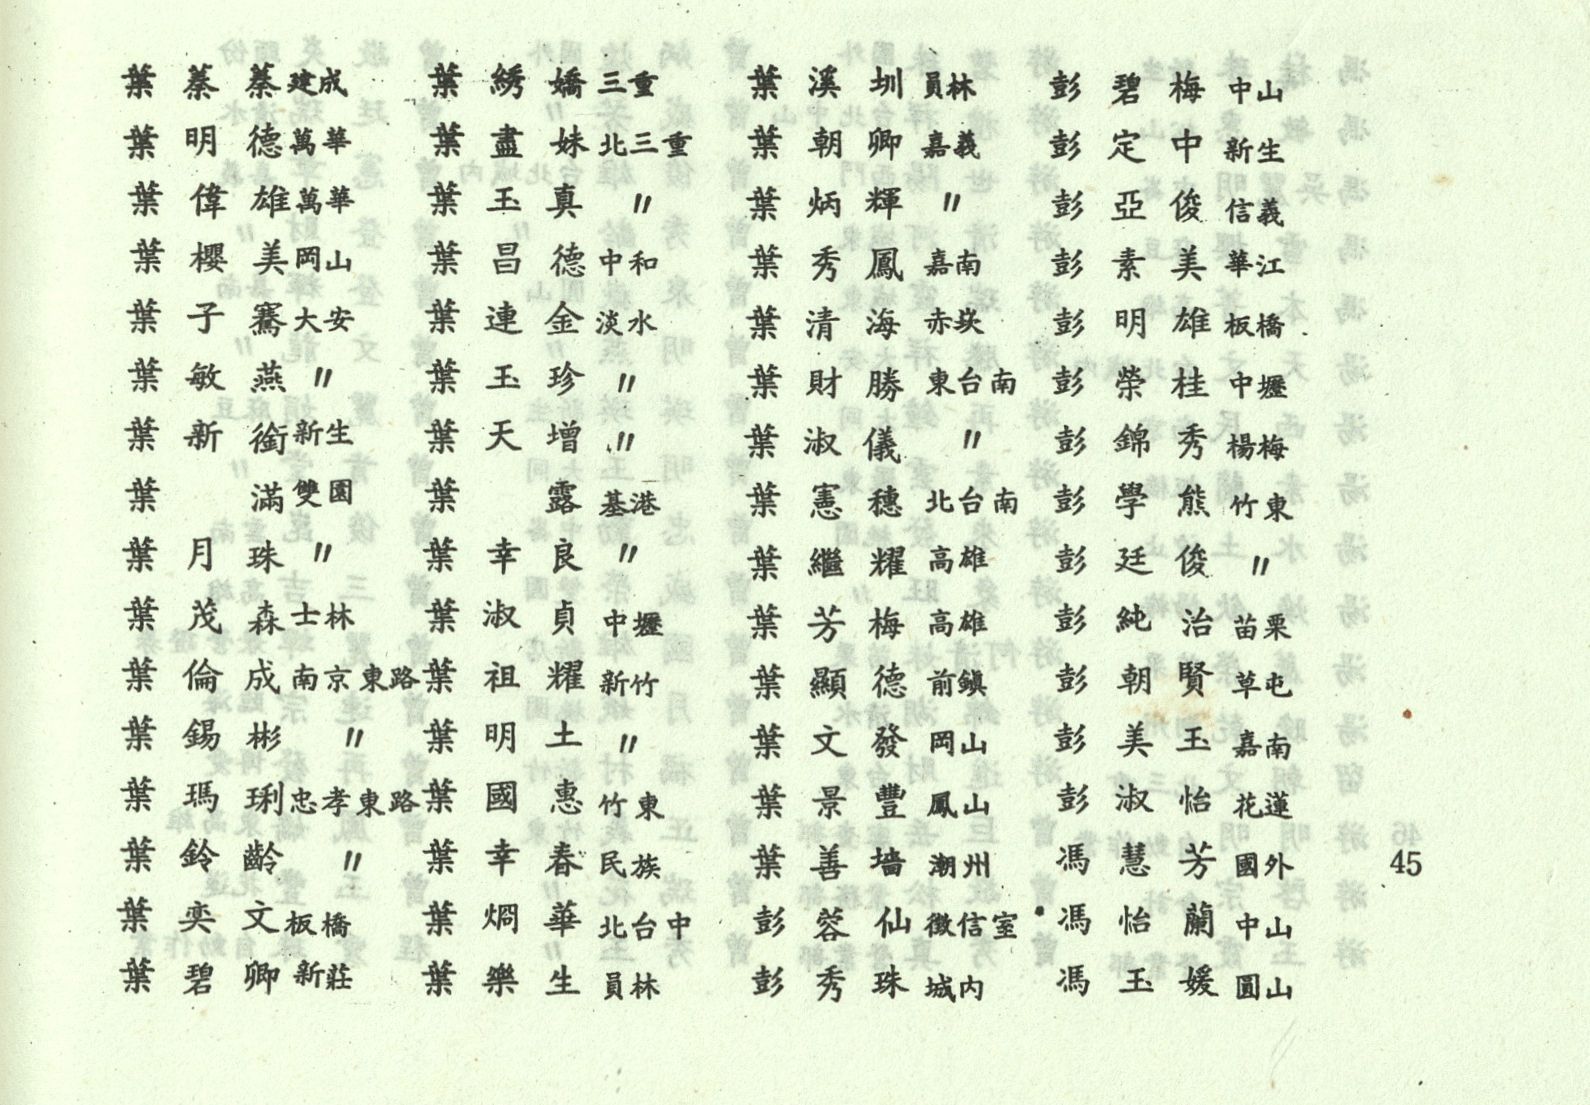 葉蓁蓁建成
葉明德萬華
葉偉雄萬華
葉櫻美岡山
葉子騫大安
葉敏燕〃
葉新銜新生
葉滿雙園
葉月珠〃
葉茂森士林
葉倫成南京東路
葉錫彬〃
葉瑪琍忠孝東路
葉鈴齡〃
葉奕文板橋
葉碧卿新莊
葉綉嬌三重
葉盡妹北三重
葉玉真〃
葉昌德中和
葉連金淡水
葉玉珍〃
葉天增〃
葉露基港
葉幸良〃
葉淑貞中壢
葉祖耀新竹
葉明土〃
葉國惠竹東
葉幸春民族
葉烱華北台中
葉樂生員林
葉溪圳員林
葉朝卿嘉義
葉炳輝〃
葉秀鳳嘉南
葉清海赤崁
葉財勝東台南
葉淑儀〃
葉憲穗北台南
葉繼耀高雄
葉芳梅高雄
葉顯德前鎮
葉文發岡山
葉景豐鳳山
葉善墻潮州
彭蓉仙徵信室
彭秀珠城內
彭碧梅中山
彭定中新生
彭亞俊信義
彭素美華江
彭明雄板橋
彭榮桂中壢
彭錦秀楊梅
彭學熊竹東
彭廷俊〃
彭純治苗栗
彭朝賢草屯
彭美玉嘉南
彭淑怡花蓮
馮慧芳國外
馮怡蘭中山
馮玉媛圓山
45